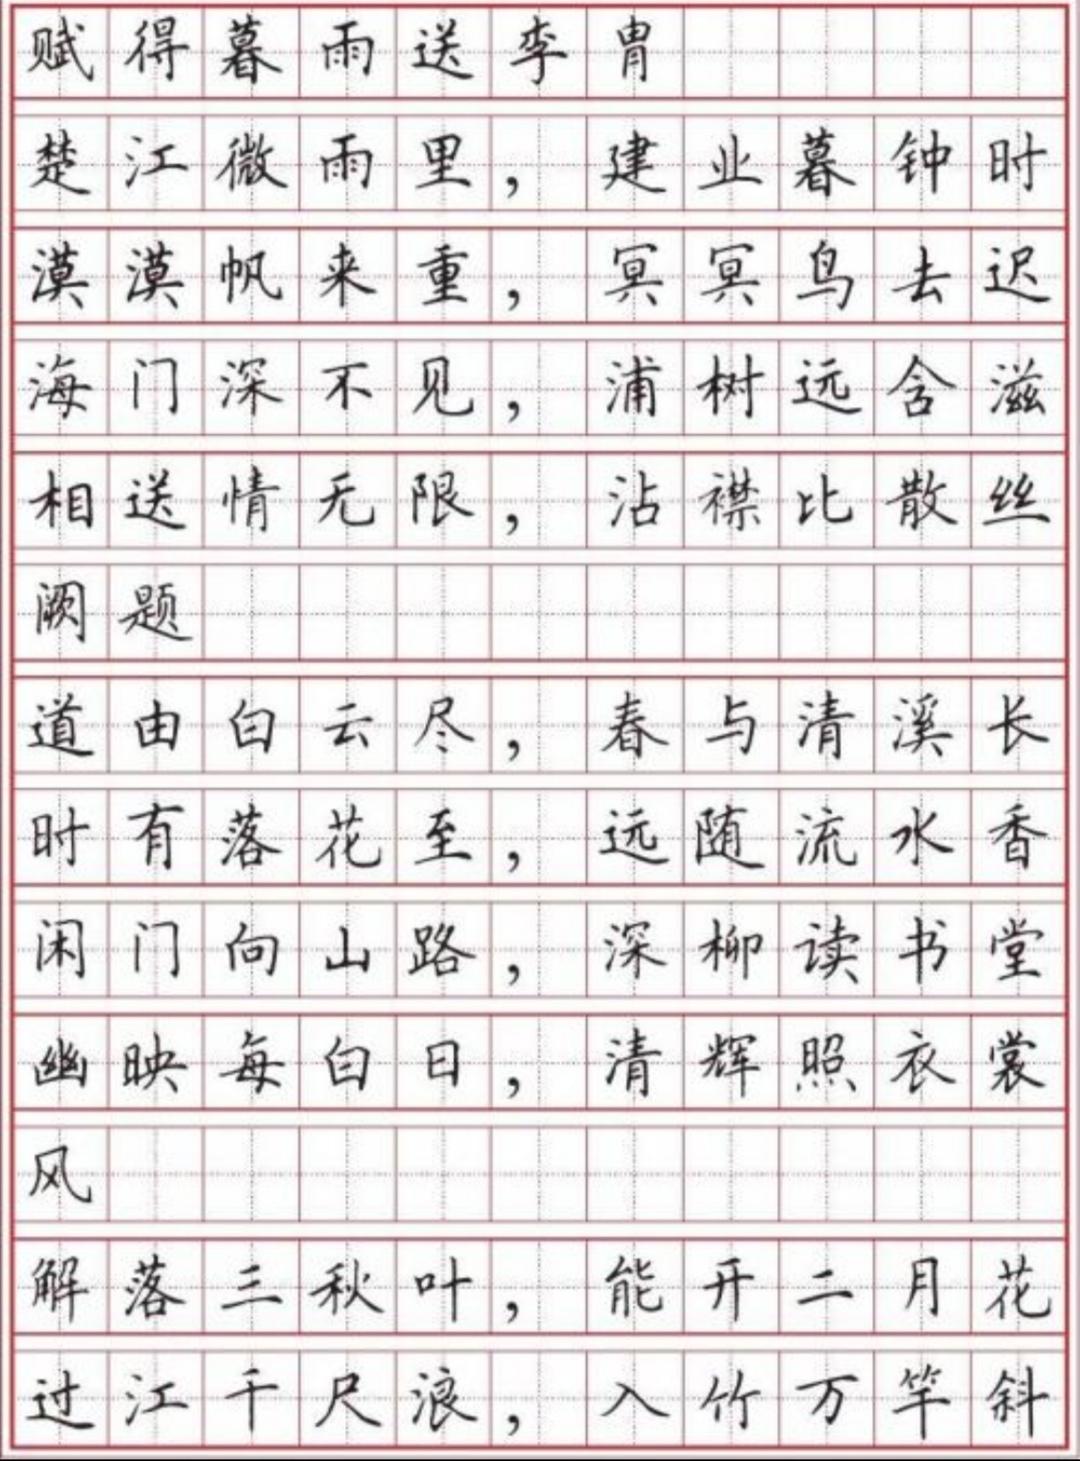 赋得暮雨送李胄
楚江微雨里，建业暮钟时
漠漠帆来重，冥冥鸟去迟
海门深不见，浦树远含滋
相送情无限，沾襟比散丝
阙题
道由白云尽，春与清溪长
时有落花至，远随流水香
闲门向山路，深柳读书堂
幽映每白日，清辉照衣裳
风
解落三秋叶，能开二月花
过江千尺浪，入竹万竿斜